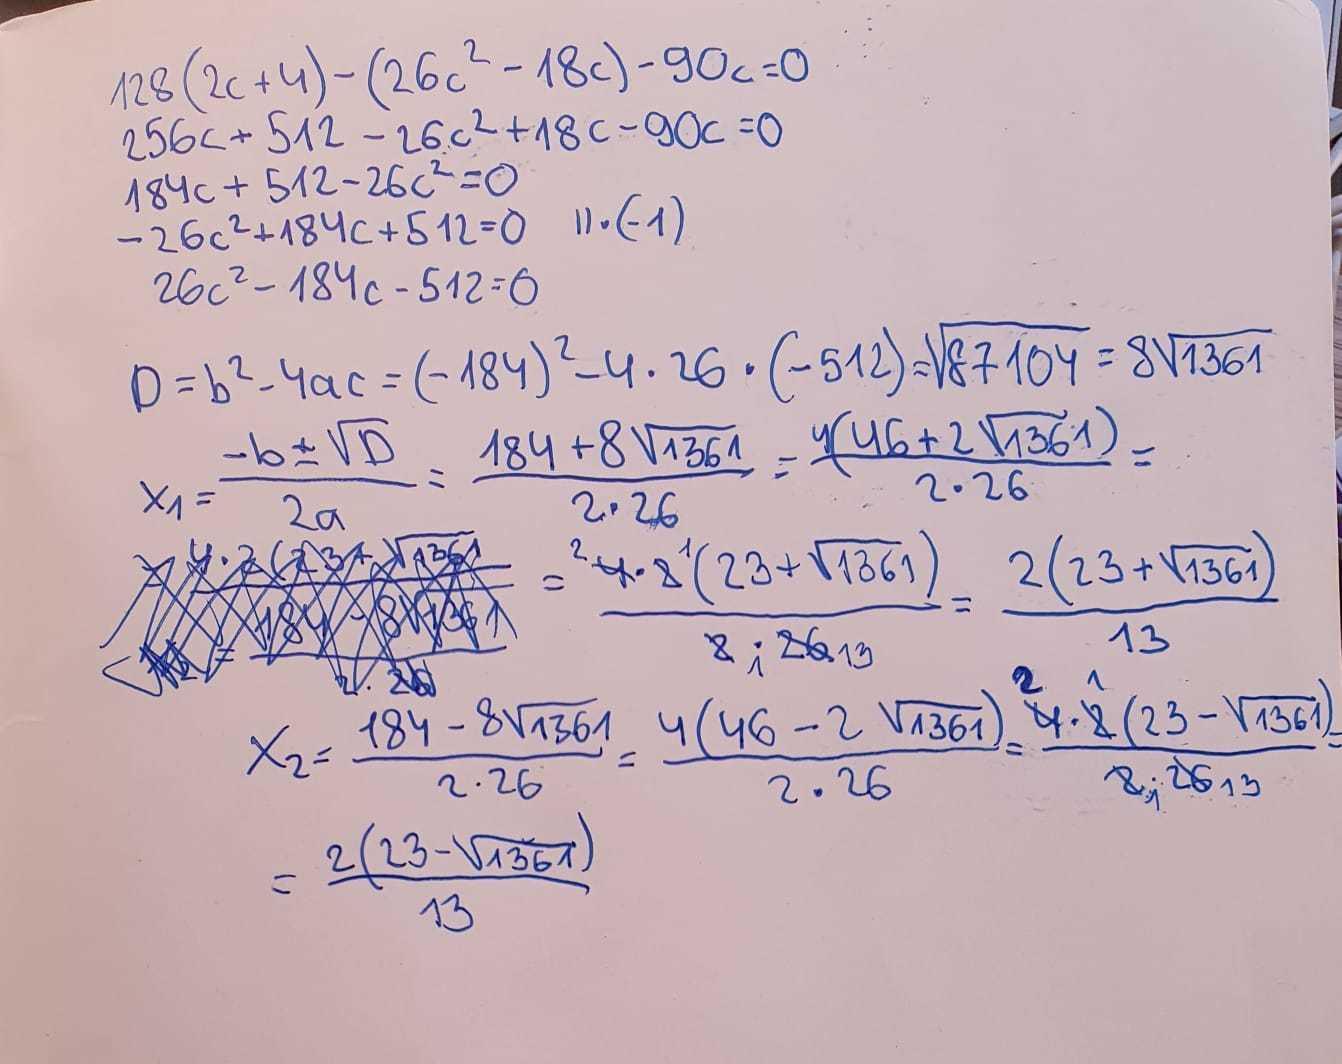 128(2c+4)-(26c²-18c)-90c=0
256c+512-26c²+18c-90c=0
184c+512-26c²=0
-26c²+184c+512=0 //·(-1)
26c²-184c-512=0
D=b²-4ac=(-184)²-4·26·(-512)=√87104=8√1361
x₁=(-b±√D)/(2a)=(184+8√1361)/(2·26)=4(46+2√1361)/(2·26)=
=²4·2¹(23+√1361)/(2₁·26₁₃)=2(23+√1361)/13
x₂=(184-8√1361)/(2·26)=4(46-2√1361)/(2·26)=²4·2¹(23-√1361)/(2₁·26₁₃)=
=2(23-√1361)/13